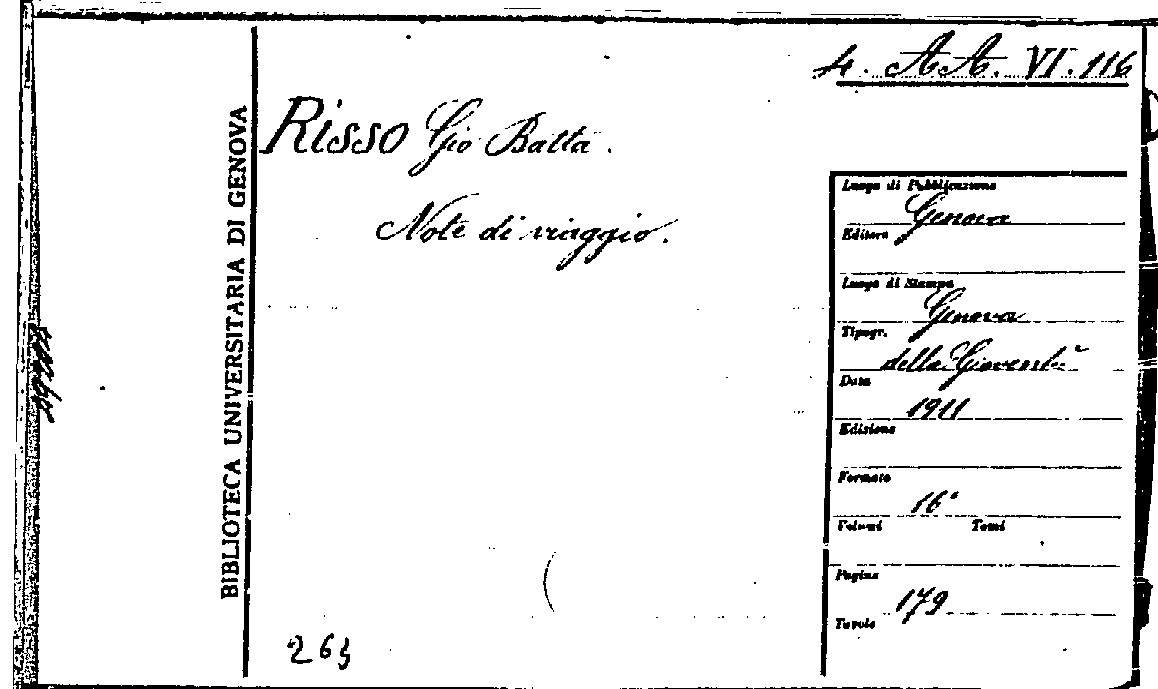 4. AA. VI. 116
BIBLIOTECA UNIVERSITARIA DI GENOVA
Risso Gio Batta.
Note di viaggio.
Luogo di Pubblicazione
Genova
Editore
Luogo di Stampa
Genova
Tipogr.
della Gioventù
Data
1911
Edizione
Formato
16°
Volumi Tomi
Pagine
179
Tavole